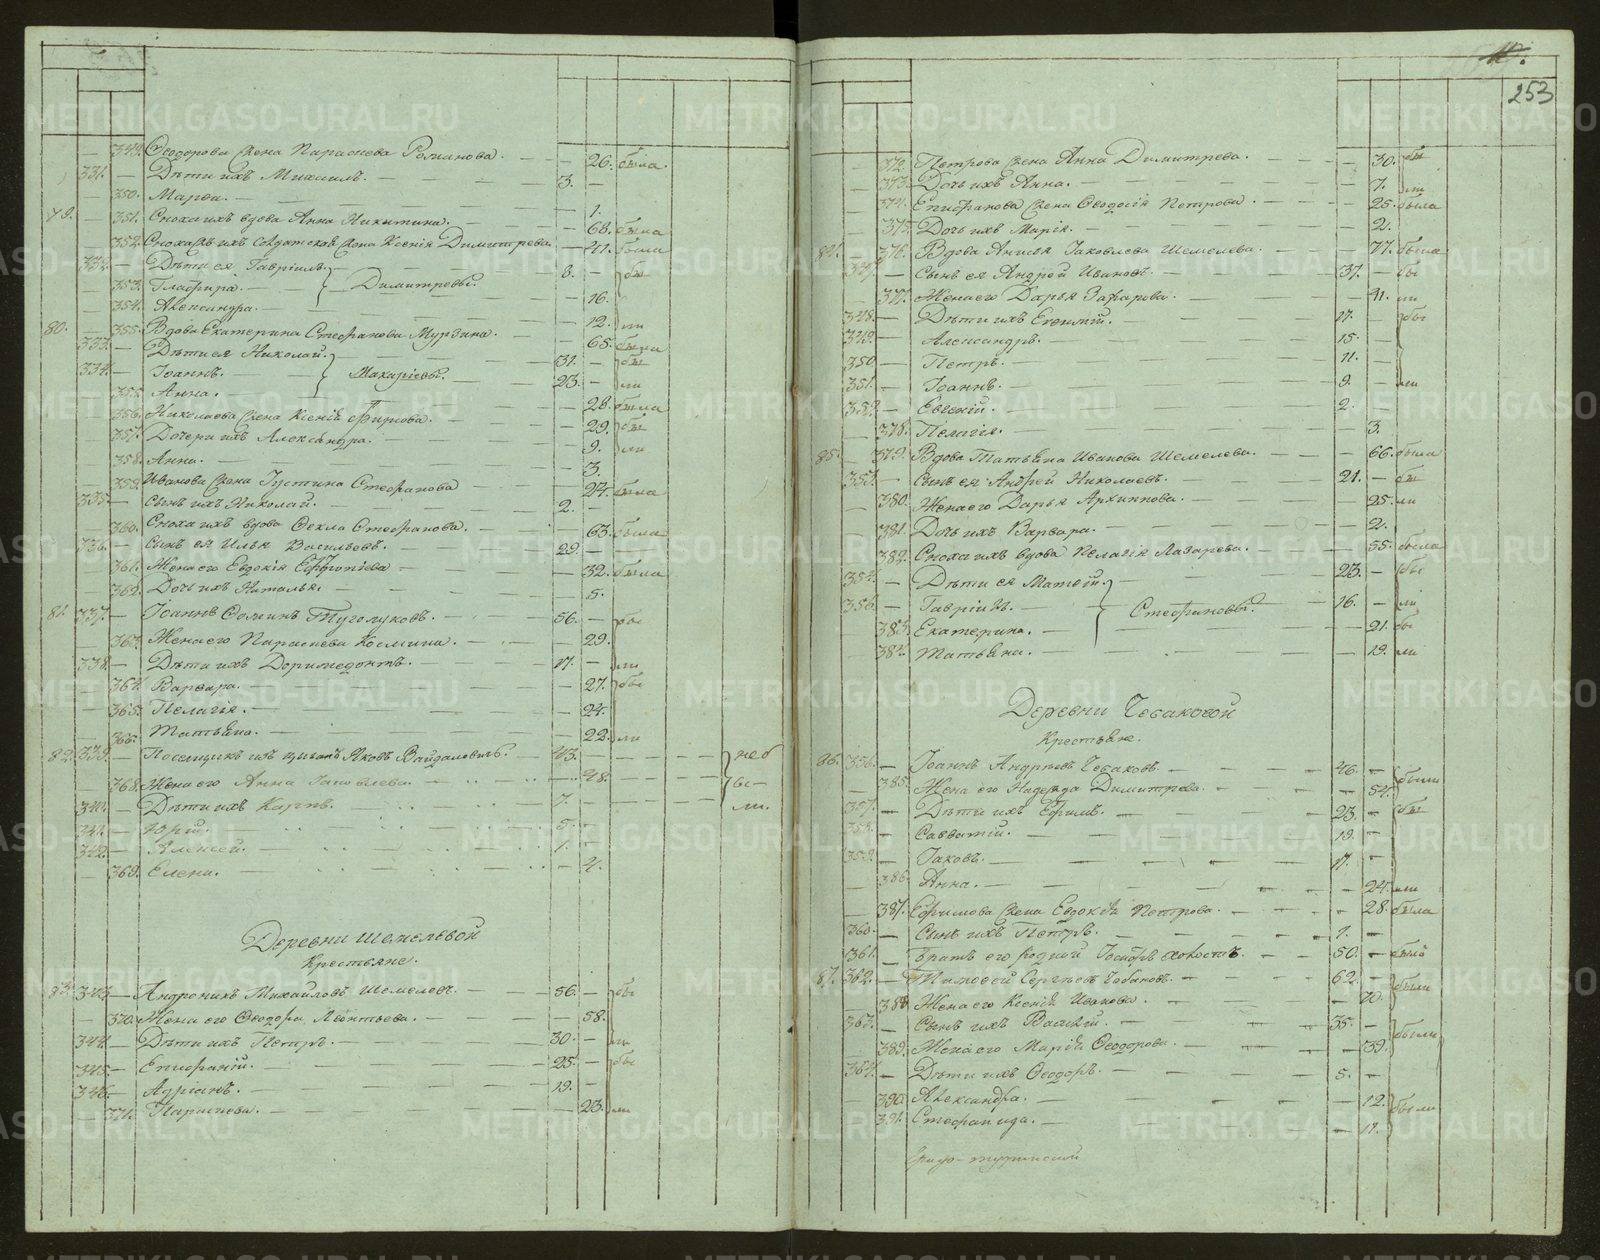 349. Ѳеодорова жена Параскева Романова. — — 26. была
331. — Дѣти ихъ Михаилъ. — 3. —
— 350. Марѳа. — — 1.
79. — 351. Сноха ихъ вдова Анна Никитина. — — 68. была
— 352. Сноха ихъ солдатская жена Ксенія Димитрева — 41. была
332. — Дѣти ея Гавріилъ. — 8. — бы
— 353. Гликерія. — Димитревы. — 16.
— 354. Александра. — — 12. ли
80. — 355. Вдова Екатерина Стефанова Мурзина. — — 65. была
333. — Дѣти ея Николай. — 31. — бы
334. — Іоаннъ. — Макаріевы. — 23. — ли
355. Анна. — — 28. была
356. Николаева жена Ксенія Фирсова. — — 29. бы
357. Дочери ихъ Александра. — — 9. ли
358. Анна. — — 3.
359. Иванова жена Іустина Стефанова — — 24. была
335. — Сынъ ихъ Николай. — 2. —
— 360. Сноха ихъ вдова Ѳекла Стефанова. — — 63. была
336. — Сынъ ея Илья Васильевъ. — 29. —
— 361. Жена его Евдокія — — 32. была
— 362. Дочь ихъ Наталья. — — 5.
81. 337. — Іоаннъ Ѳоминъ Туголуковъ. — 56. — бы
363. Жена его Параскева Космина. — — 29.
338. — Дѣти ихъ Доримедонтъ. — 17. — ли
— 364. Варвара. — — 27. бы
— 365. Пелагія. — — 24.
— 366. Татьяна. — — 22. ли
82. 339. — Поселщикъ изъ цыганъ Яковъ — 43. — неб
368. Жена его Анна Іаковлева — 48. — ы-
340. — Дѣти ихъ Карпъ. — 7. — ли.
341. — Юрій. 5.
342. — Алексей. 1. —
— 369. Елена. — 4.
Деревни Шемелевой
Крестьяне.
83. 343. — Андроникъ Михайловъ Шемелевъ. — 56. — бы
— 370. Жена его Ѳеодора Леонтьева. — — 58.
344. — Дѣти ихъ Петръ. — 30. — ли
345. — Епифаній. — 25. — бы
346. — Адріанъ. — 19. —
— 371. Параскева. — — 23. ли
253
372. Петрова жена Анна Димитрева. — — 30. бы
— 373. Дочь ихъ Анна. — — 7. ли
— 374. Епифанова жена Ѳеодосія Петрова. — — 25. была
— 375. Дочь ихъ Марія. — — 2.
84. — 376. Вдова Анисья Іаковлева Шемелева. — — 77. была
347. — Сынъ ея Андрей Ивановъ. — 37. — бы
— 377. Жена его Дарья Захарова. — — 41. ли
348. — Дѣти ихъ Евѳимій. — 17. — бы
349. — Александръ. — 15. —
350. — Петръ. — 11. —
351. — Іоаннъ. — 9. — ли
352. — Евгеній. — 2. —
— 378. Пелагія. — — 3.
85. — 379. Вдова Татьяна Иванова Шемелева. — — 66. была
353. — Сынъ ея Андрей Николаевъ. — 21. — бы
— 380. Жена его Дарья Архиппова. — — 25. ли
— 381. Дочь ихъ Варвара. — — 2.
— 382. Сноха ихъ вдова Пелагія Лазарева. — — 55. была
354. — Дѣти ея Матѳей. — 23. — бы
356. — Гавріилъ. — Стефановы. — 16. — ли
— 383. Екатерина. — — 21. бы
— 384. Татьяна. — — 19. ли
Деревни Чебаковой
Крестьяне.
86. 356. — Іоаннъ Андреевъ Чебаковъ. — 46. —
— 385. Жена его Надежда Димитрева. — — 54. были
357. — Дѣти ихъ Ефимъ. — 23. — бы
358. — Савватій. — 19. —
359. — Іаковъ. — 17. —
— 386. Анна. — — 24. ли
— 387. Ефимова жена Евдокія Петрова. — — 28. была
360. — Сынъ ихъ Петръ. — 1. —
361. — Братъ его родной холостъ. — 50. — былъ
87. 362. — Тимоѳей Сергѣевъ Чебаковъ. — 62. —
— 388. Жена его Ксенія Иванова. — — 70. были
363. — Сынъ ихъ Василій. — 35. —
— 389. Жена его Марія Ѳеодорова. — — 39. были
364. — Дѣти ихъ Ѳеодоръ. — 5. —
— 390. Александра. — — 12. были
— 391. Стефанида. — — 11.
METRIKI.GASO-URAL.RU